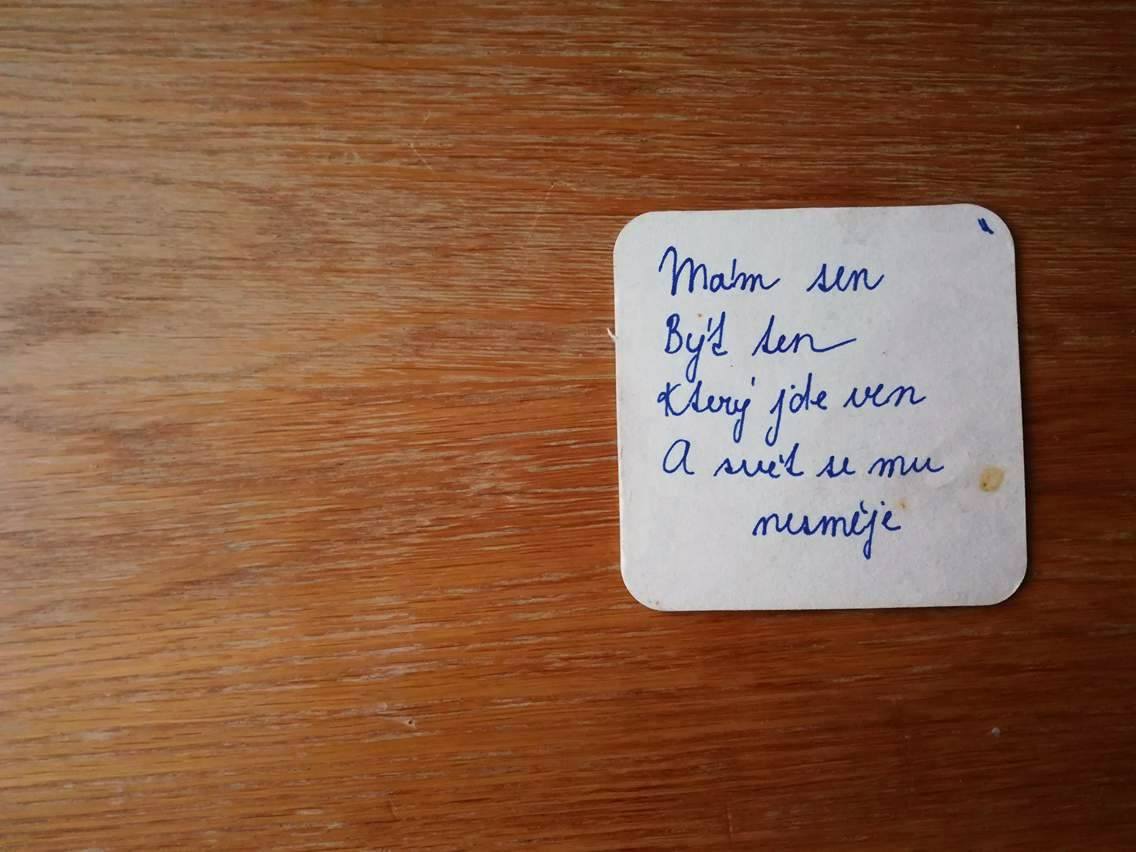 Mám sen
Být ten
Který jde ven
A svět se mu
nesměje